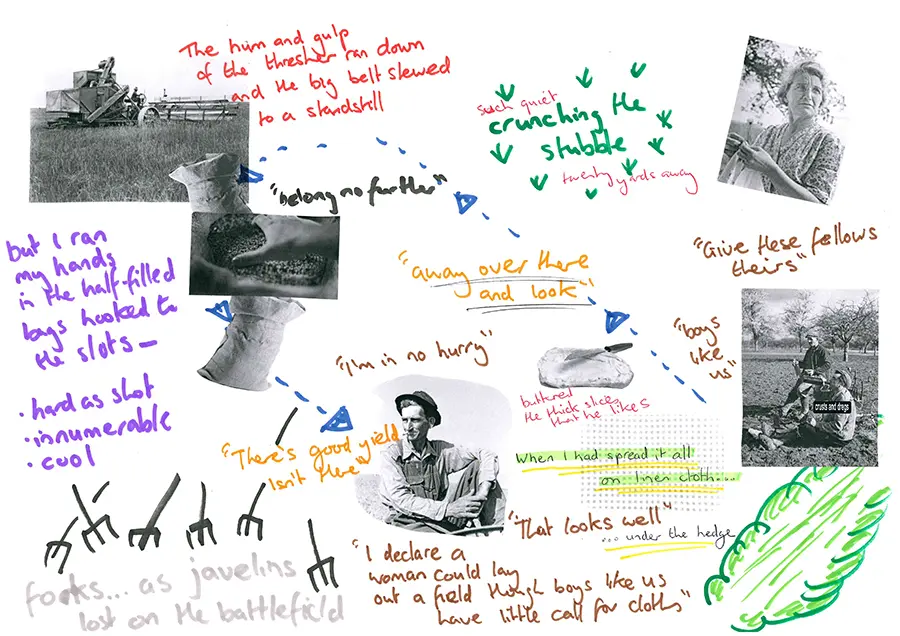 The hum and gulp
of the thresher ran down
and the big belt slewed
to a standstill
such quiet
crunching the
stubble
twenty yards away
"belong no further"
but I ran
my hands
in the half-filled
bags hooked to
the slots—
• hard as shot
• innumerable
• cool
"away over there
and look"
"Give these fellows
theirs"
"boys
like
us"
crusts and dregs
"I'm in no hurry"
buttered
the thick slices
that he likes
"There's good yield
Isn't there"
When I had spread it all
on linen cloth....
"That looks well"
... under the hedge
"I declare a
woman could lay
out a field though boys like us
have little call for cloths"
forks... as javelins
lost on the battlefield